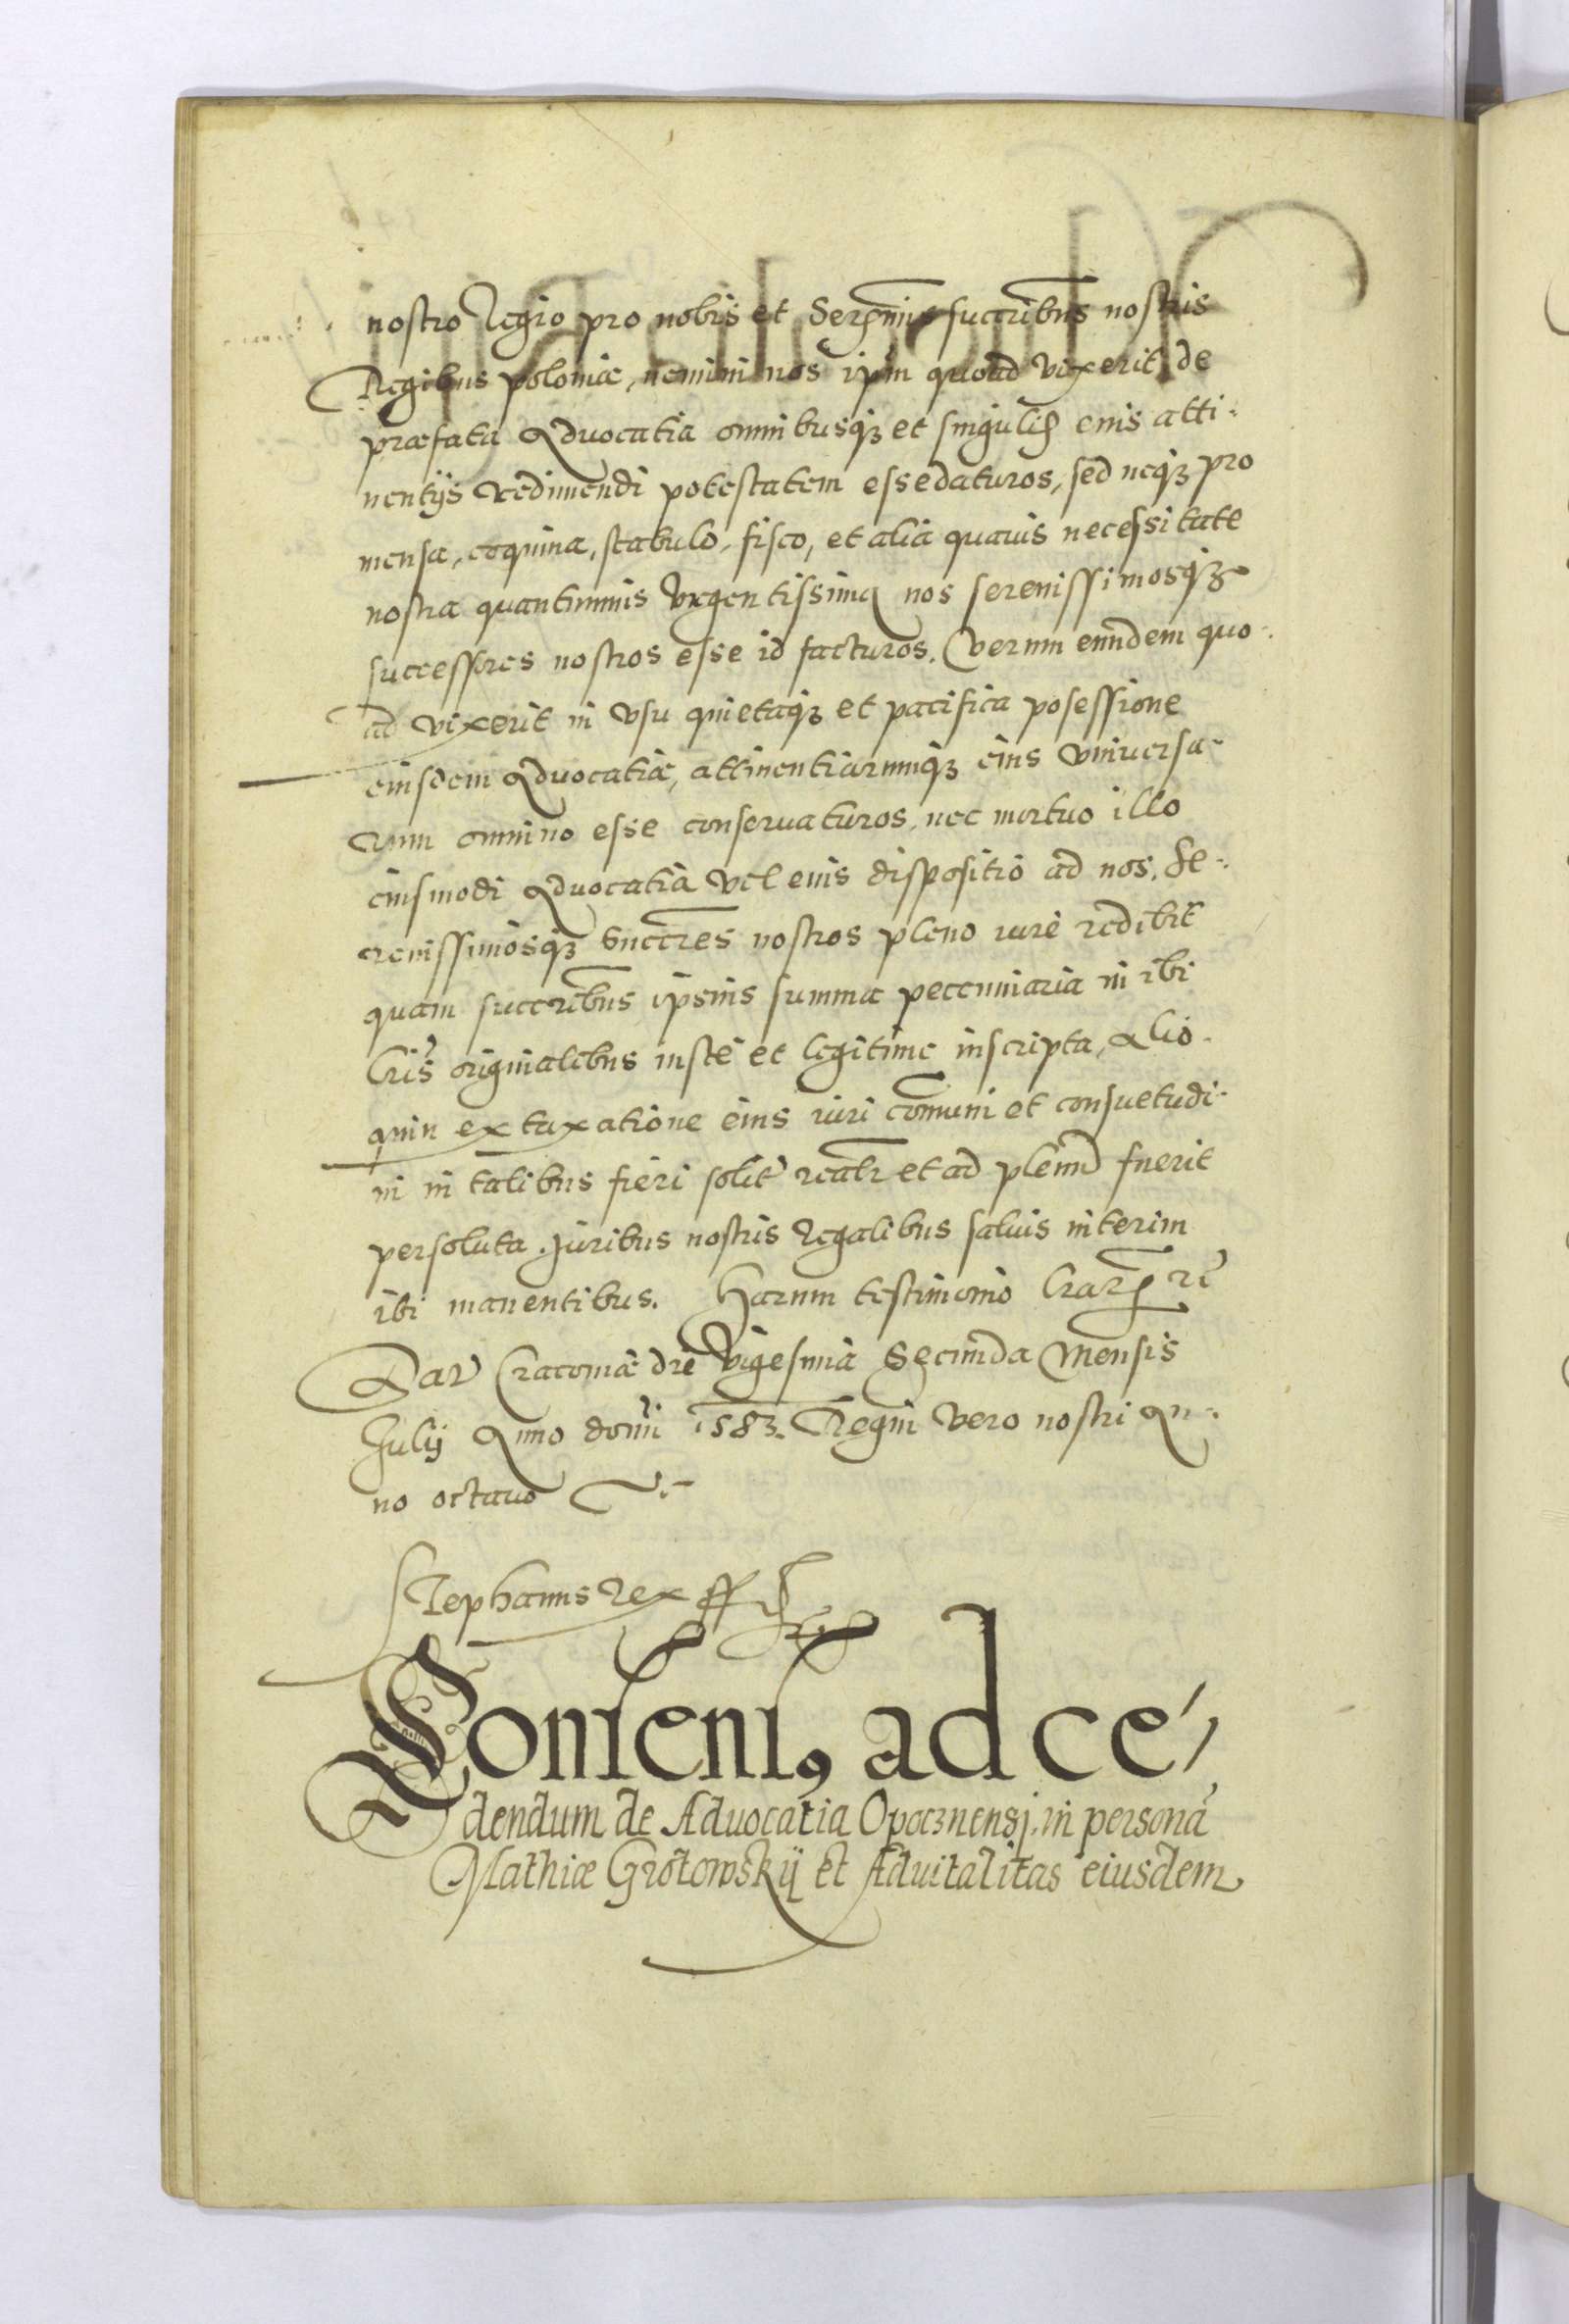 nostro Regio pro nobis et Serḡmis succribus nostris
Regibus poloniæ, nemini nos ipm̄ quoad vixerit de
præfata Advocatia omnibusqʒ et singulis eius atti-
nentijs redimendi potestatem esse daturos, sed neqʒ pro
mensa, coquina, stabulo, fisco, et alia quavis necessitate
nostra quantumvis vrgentissima nos serenissimosqʒ
successores nostros esse id facturos. Verum eundem quo-
ad vixerit in vsu quietaqʒ et pacifica posessione
eiusdem Advocatiæ, attinentiarumqʒ eius vniversa-
rum omnino esse conservaturos, nec mortuo illo
eiusmodi Advocatia vel eius dispositio ad nos, Se-
renissimosqʒ Succres nostros pleno iure redibit
quam succribus ipsius summa pecuniaria in ibi
lris originalibus iuste et legitime inscripta, Alio-
quin ex taxatione eius iuri comuni et consvetudi-
ni in talibus fieri solit realr et ad plenu fuerit
persoluta. Juribus nostris Regalibus salvis interim
ibi manentibus. Harum testimonio lrarꝝ
Dat Cracoviæ die Vigesima Secunda Mensis
Julij Anno domi 1583. Regni vero nostri An-
no octavo
Stephanus Rex ſſt
Consens9 ad ce-
dendum de Advocatia Opocznensj in persona
Mathiæ Grotowskij et Advitalitas eiusdem